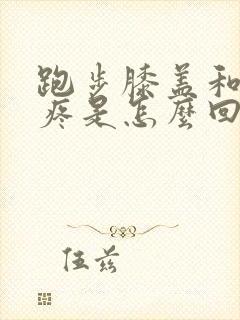 跑步膝盖和
疼是怎麼回
伍兹